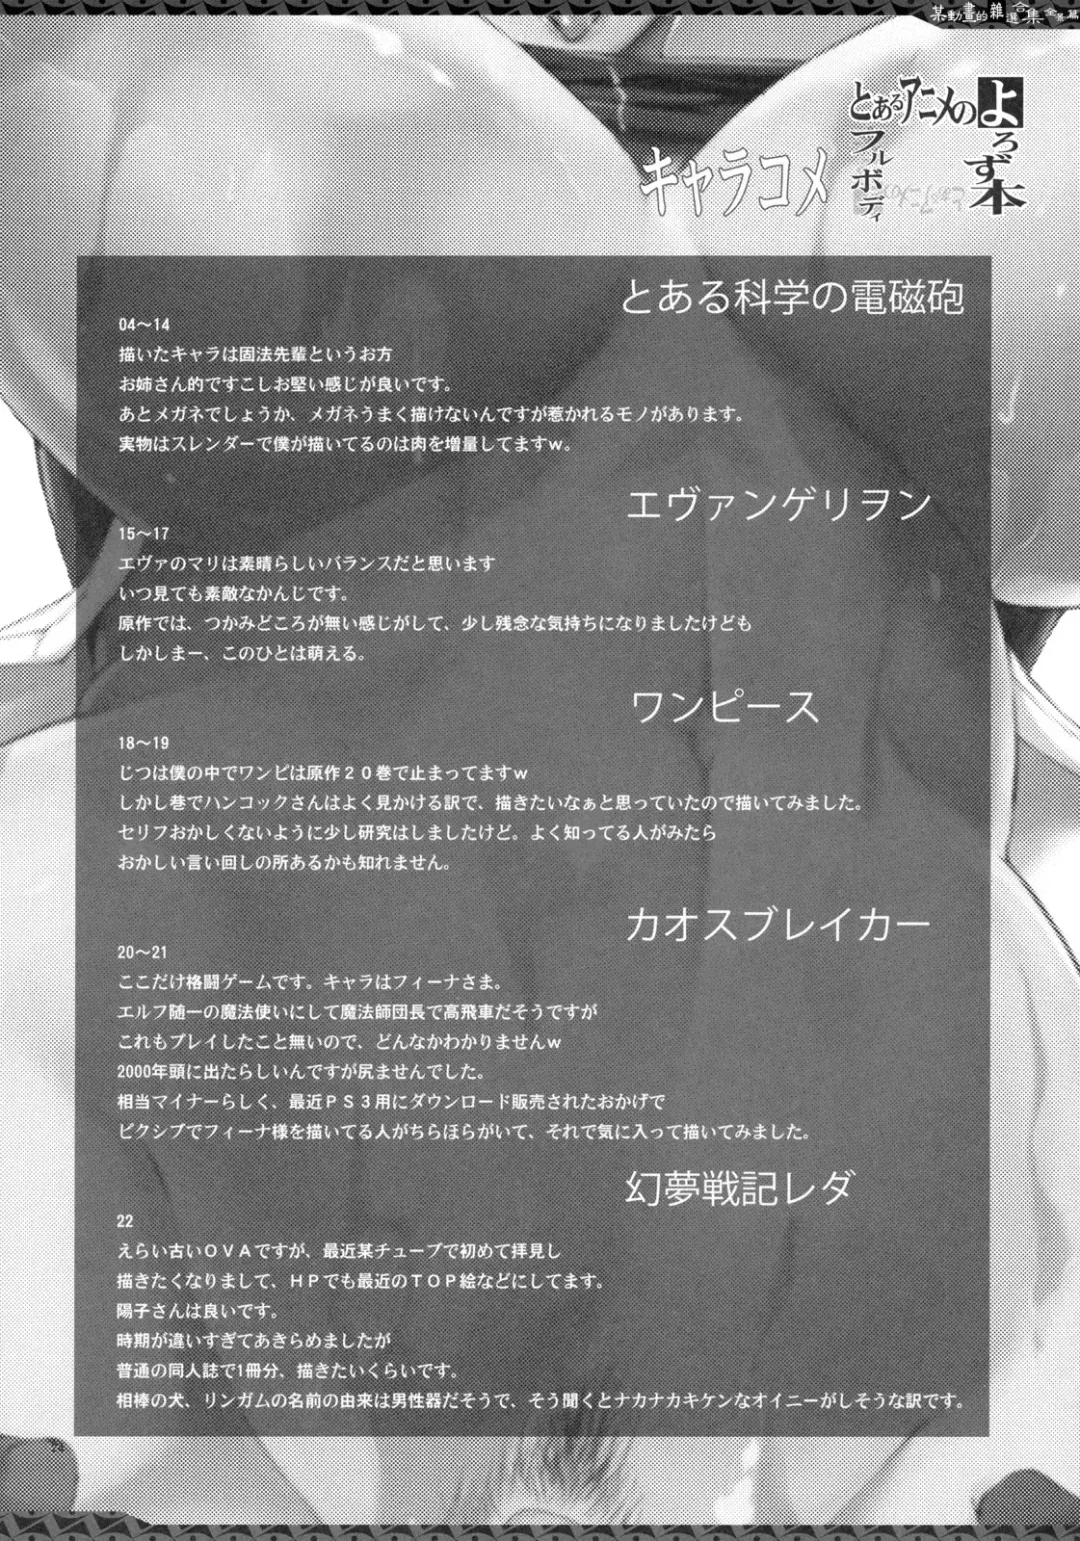 某動畫的雜選合集全景篇
とあるアニメのよろず本
フルボディ
キャラコメ
とある科学の電磁砲
04～14
描いたキャラは固法先輩というお方
お姉さん的ですこしお堅い感じが良いです。
あとメガネでしょうか、メガネうまく描けないんですが惹かれるモノがあります。
実物はスレンダーで僕が描いてるのは肉を増量してますｗ。
エヴァンゲリヲン
15～17
エヴァのマリは素晴らしいバランスだと思います
いつ見ても素敵なかんじです。
原作では、つかみどころが無い感じがして、少し残念な気持ちになりましたけども
しかしまー、このひとは萌える。
ワンピース
18～19
じつは僕の中でワンピは原作２０巻で止まってますｗ
しかし巷でハンコックさんはよく見かける訳で、描きたいなぁと思っていたので描いてみました。
セリフおかしくないように少し研究はしましたけど。よく知ってる人がみたら
おかしい言い回しの所あるかも知れません。
カオスブレイカー
20～21
ここだけ格闘ゲームです。キャラはフィーナさま。
エルフ随一の魔法使いにして魔法師団長で高飛車だそうですが
これもプレイしたこと無いので、どんなかわかりませんｗ
2000年頭に出たらしいんですが尻ませんでした。
相当マイナーらしく、最近ＰＳ３用にダウンロード販売されたおかげで
ピクシブでフィーナ様を描いてる人がちらほらがいて、それで気に入って描いてみました。
幻夢戦記レダ
22
えらい古いＯＶＡですが、最近某チューブで初めて拝見し
描きたくなりまして、ＨＰでも最近のＴＯＰ絵などにしてます。
陽子さんは良いです。
時期が違いすぎてあきらめましたが
普通の同人誌で1冊分、描きたいくらいです。
相棒の犬、リンガムの名前の由来は男性器だそうで、そう聞くとナカナカキケンなオイニーがしそうな訳です。